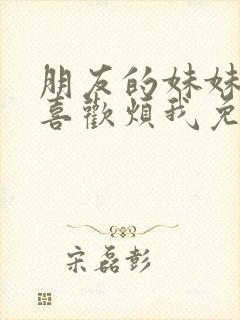 朋友的妹妹
喜歡煩我免
宋磊彭